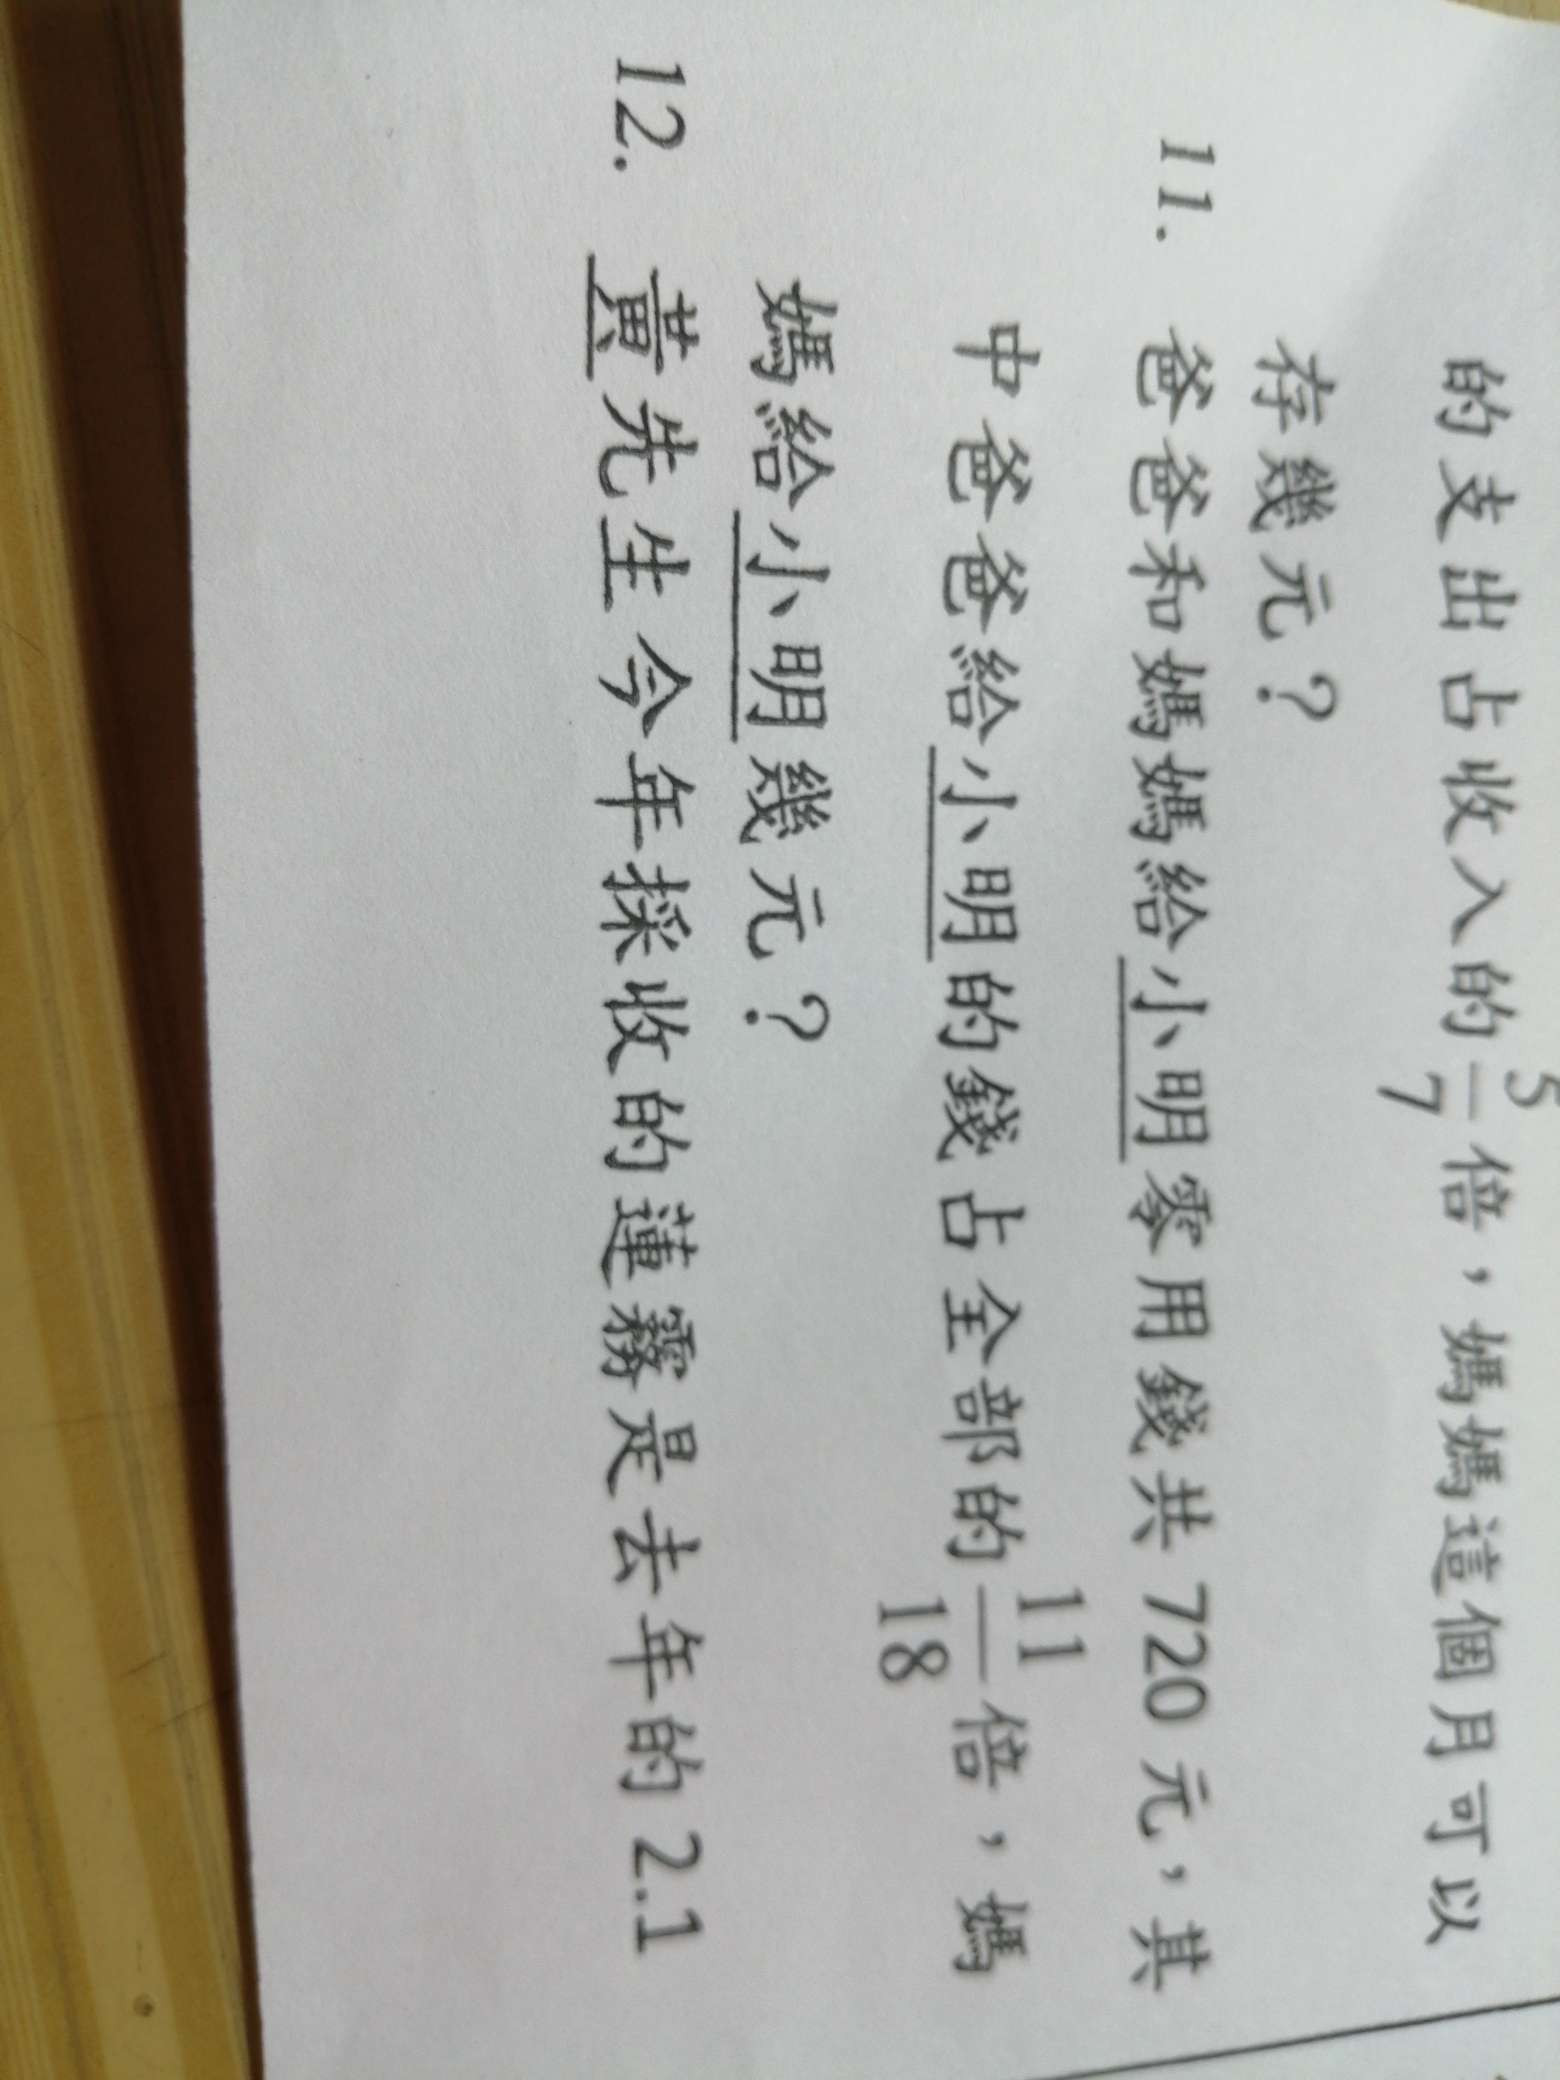 的支出占收入的5/7倍，媽媽這個月可以
存幾元？
11. 爸爸和媽媽給小明零用錢共 720 元，其
中爸爸給小明的錢占全部的11/18倍，媽
媽給小明幾元？
12. 黃先生今年採收的蓮霧是去年的 2.1